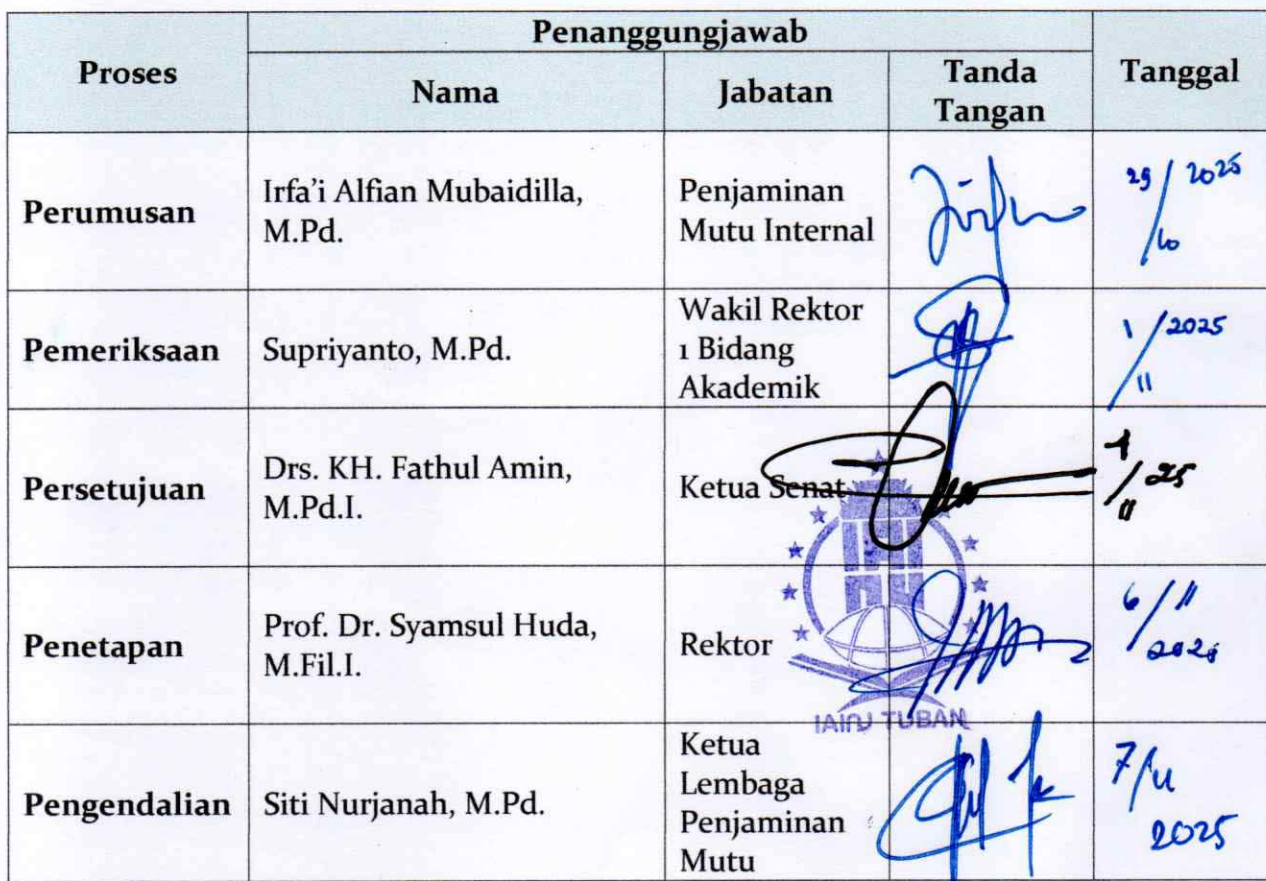 Proses
Penanggungjawab
Nama
Jabatan
Tanda
Tangan
Tanggal
Perumusan
Irfa'i Alfian Mubaidilla,
M.Pd.
Penjaminan
Mutu Internal
29/10 2025
Pemeriksaan
Supriyanto, M.Pd.
Wakil Rektor
1 Bidang
Akademik
1/11 2025
Persetujuan
Drs. KH. Fathul Amin,
M.Pd.I.
Ketua Senat
/11 25
Penetapan
Prof. Dr. Syamsul Huda,
M.Fil.I.
Rektor
6/11
IAINU TUBAN
Pengendalian
Siti Nurjanah, M.Pd.
Ketua
Lembaga
Penjaminan
Mutu
7/11
2025